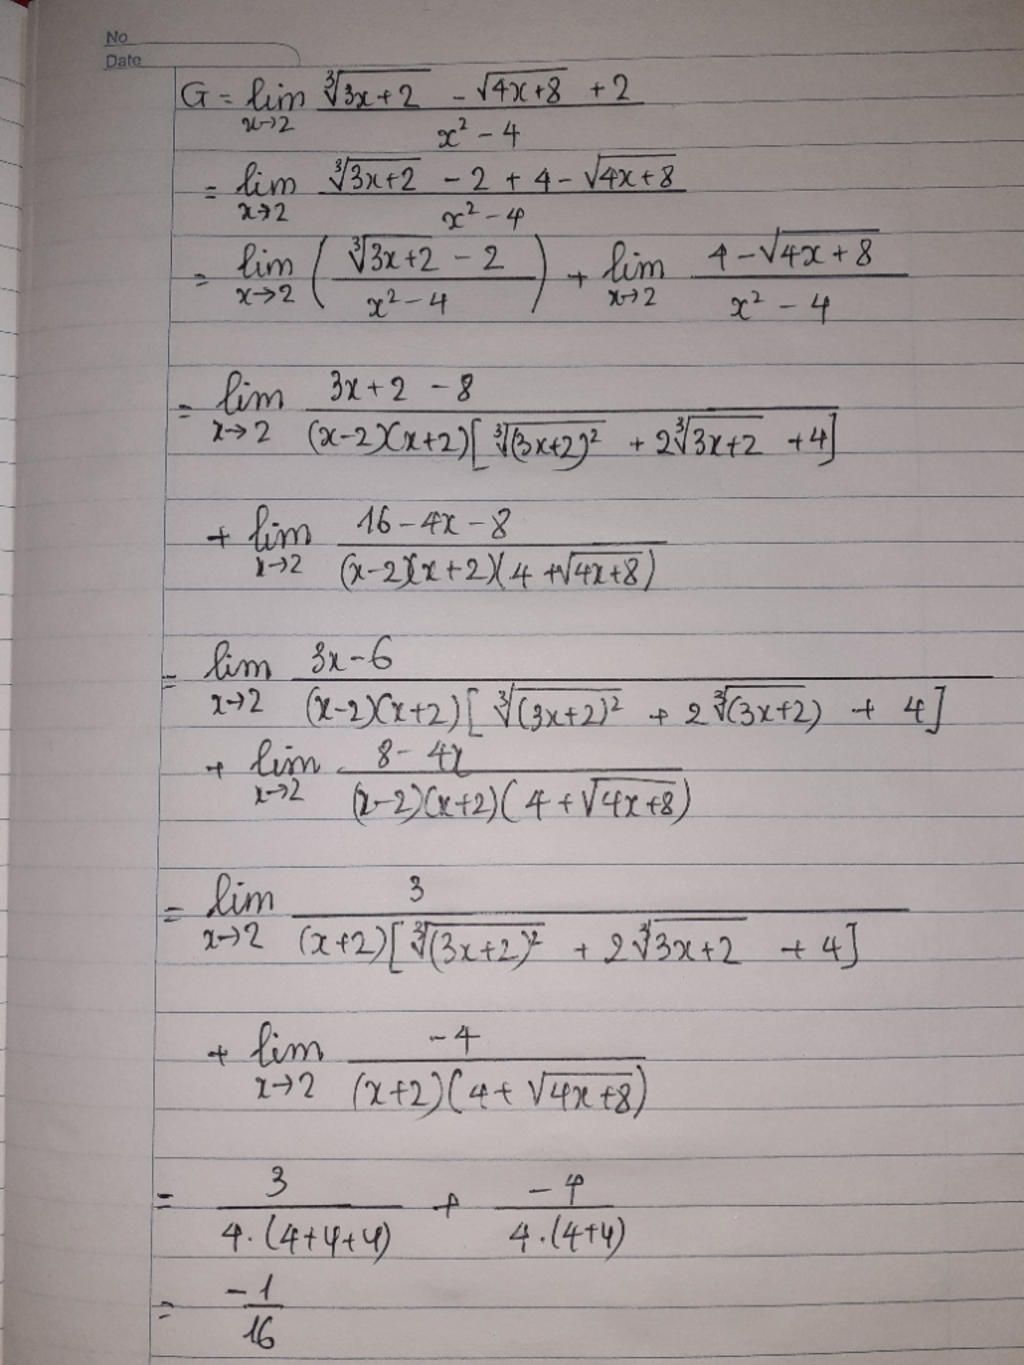 No
Date
G = lim x→2 (∛(3x+2) - √(4x+8) + 2) / (x² - 4)
= lim x→2 (∛(3x+2) - 2 + 4 - √(4x+8)) / (x² - 4)
= lim x→2 ((∛(3x+2) - 2) / (x² - 4)) + lim x→2 (4 - √(4x+8)) / (x² - 4)
= lim x→2 (3x+2 - 8) / ((x-2)(x+2)[∛(3x+2)² + 2∛(3x+2) + 4])
+ lim x→2 (16 - 4x - 8) / ((x-2)(x+2)(4 + √(4x+8)))
= lim x→2 (3x - 6) / ((x-2)(x+2)[∛(3x+2)² + 2∛(3x+2) + 4])
+ lim x→2 (8 - 4x) / ((x-2)(x+2)(4 + √(4x+8)))
= lim x→2 3 / ((x+2)[∛(3x+2)² + 2∛(3x+2) + 4])
+ lim x→2 -4 / ((x+2)(4 + √(4x+8)))
= 3 / (4.(4+4+4)) + -4 / (4.(4+4))
= -1 / 16